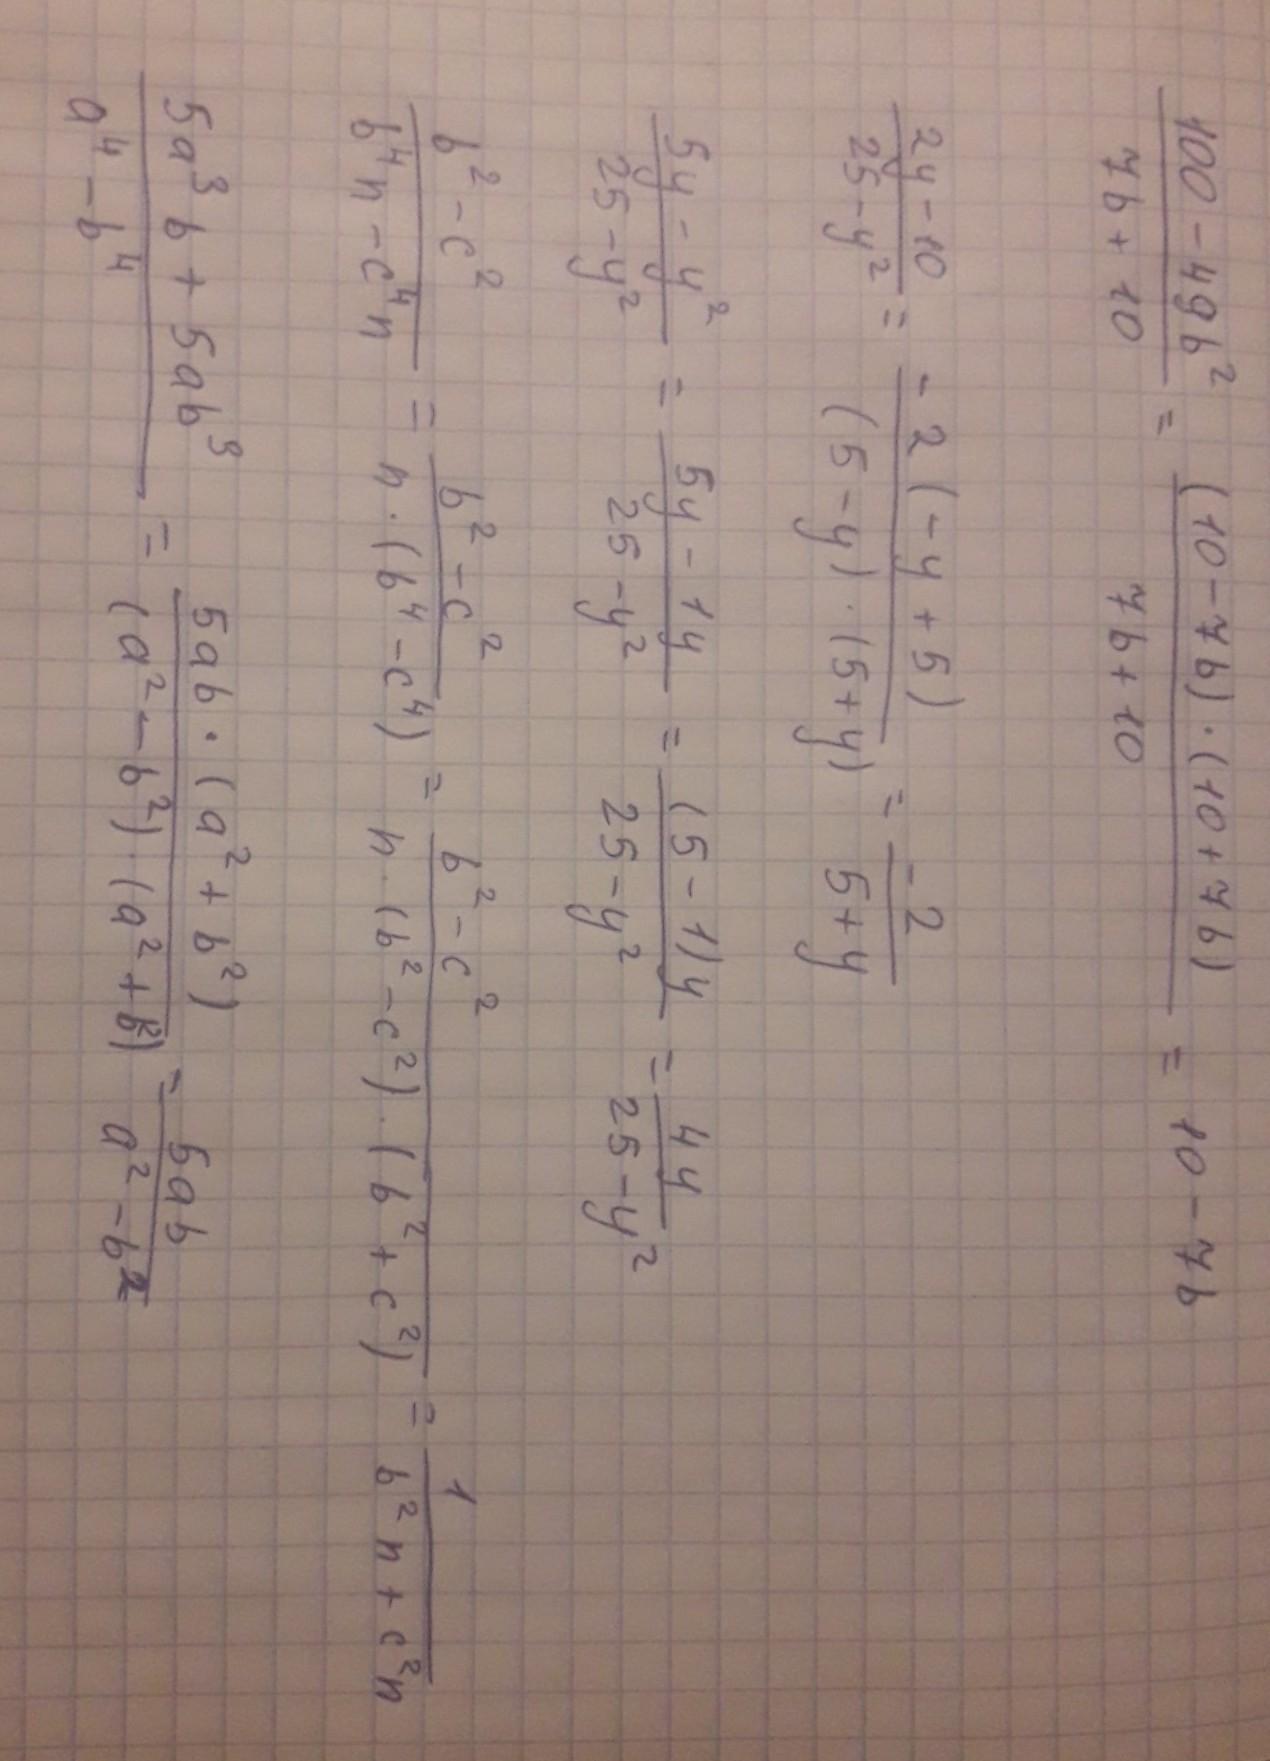 (100 - 49b²)/(7b + 10) = ((10 - 7b) · (10 + 7b))/(7b + 10) = 10 - 7b
(2y - 10)/(25 - y²) = (-2(-y + 5))/((5 - y) · (5 + y)) = (-2)/(5 + y)
(5y - y²)/(25 - y²) = (5y - 1y)/(25 - y²) = ((5 - 1)y)/(25 - y²) = (4y)/(25 - y²)
(b² - c²)/(b⁴n - c⁴n) = (b² - c²)/(n · (b⁴ - c⁴)) = (b² - c²)/(n · (b² - c²) · (b² + c²)) = 1/(b²n + c²n)
(5a³b + 5ab³)/(a⁴ - b⁴) = (5ab · (a² + b²))/((a² - b²) · (a² + b²)) = (5ab)/(a² - b²)